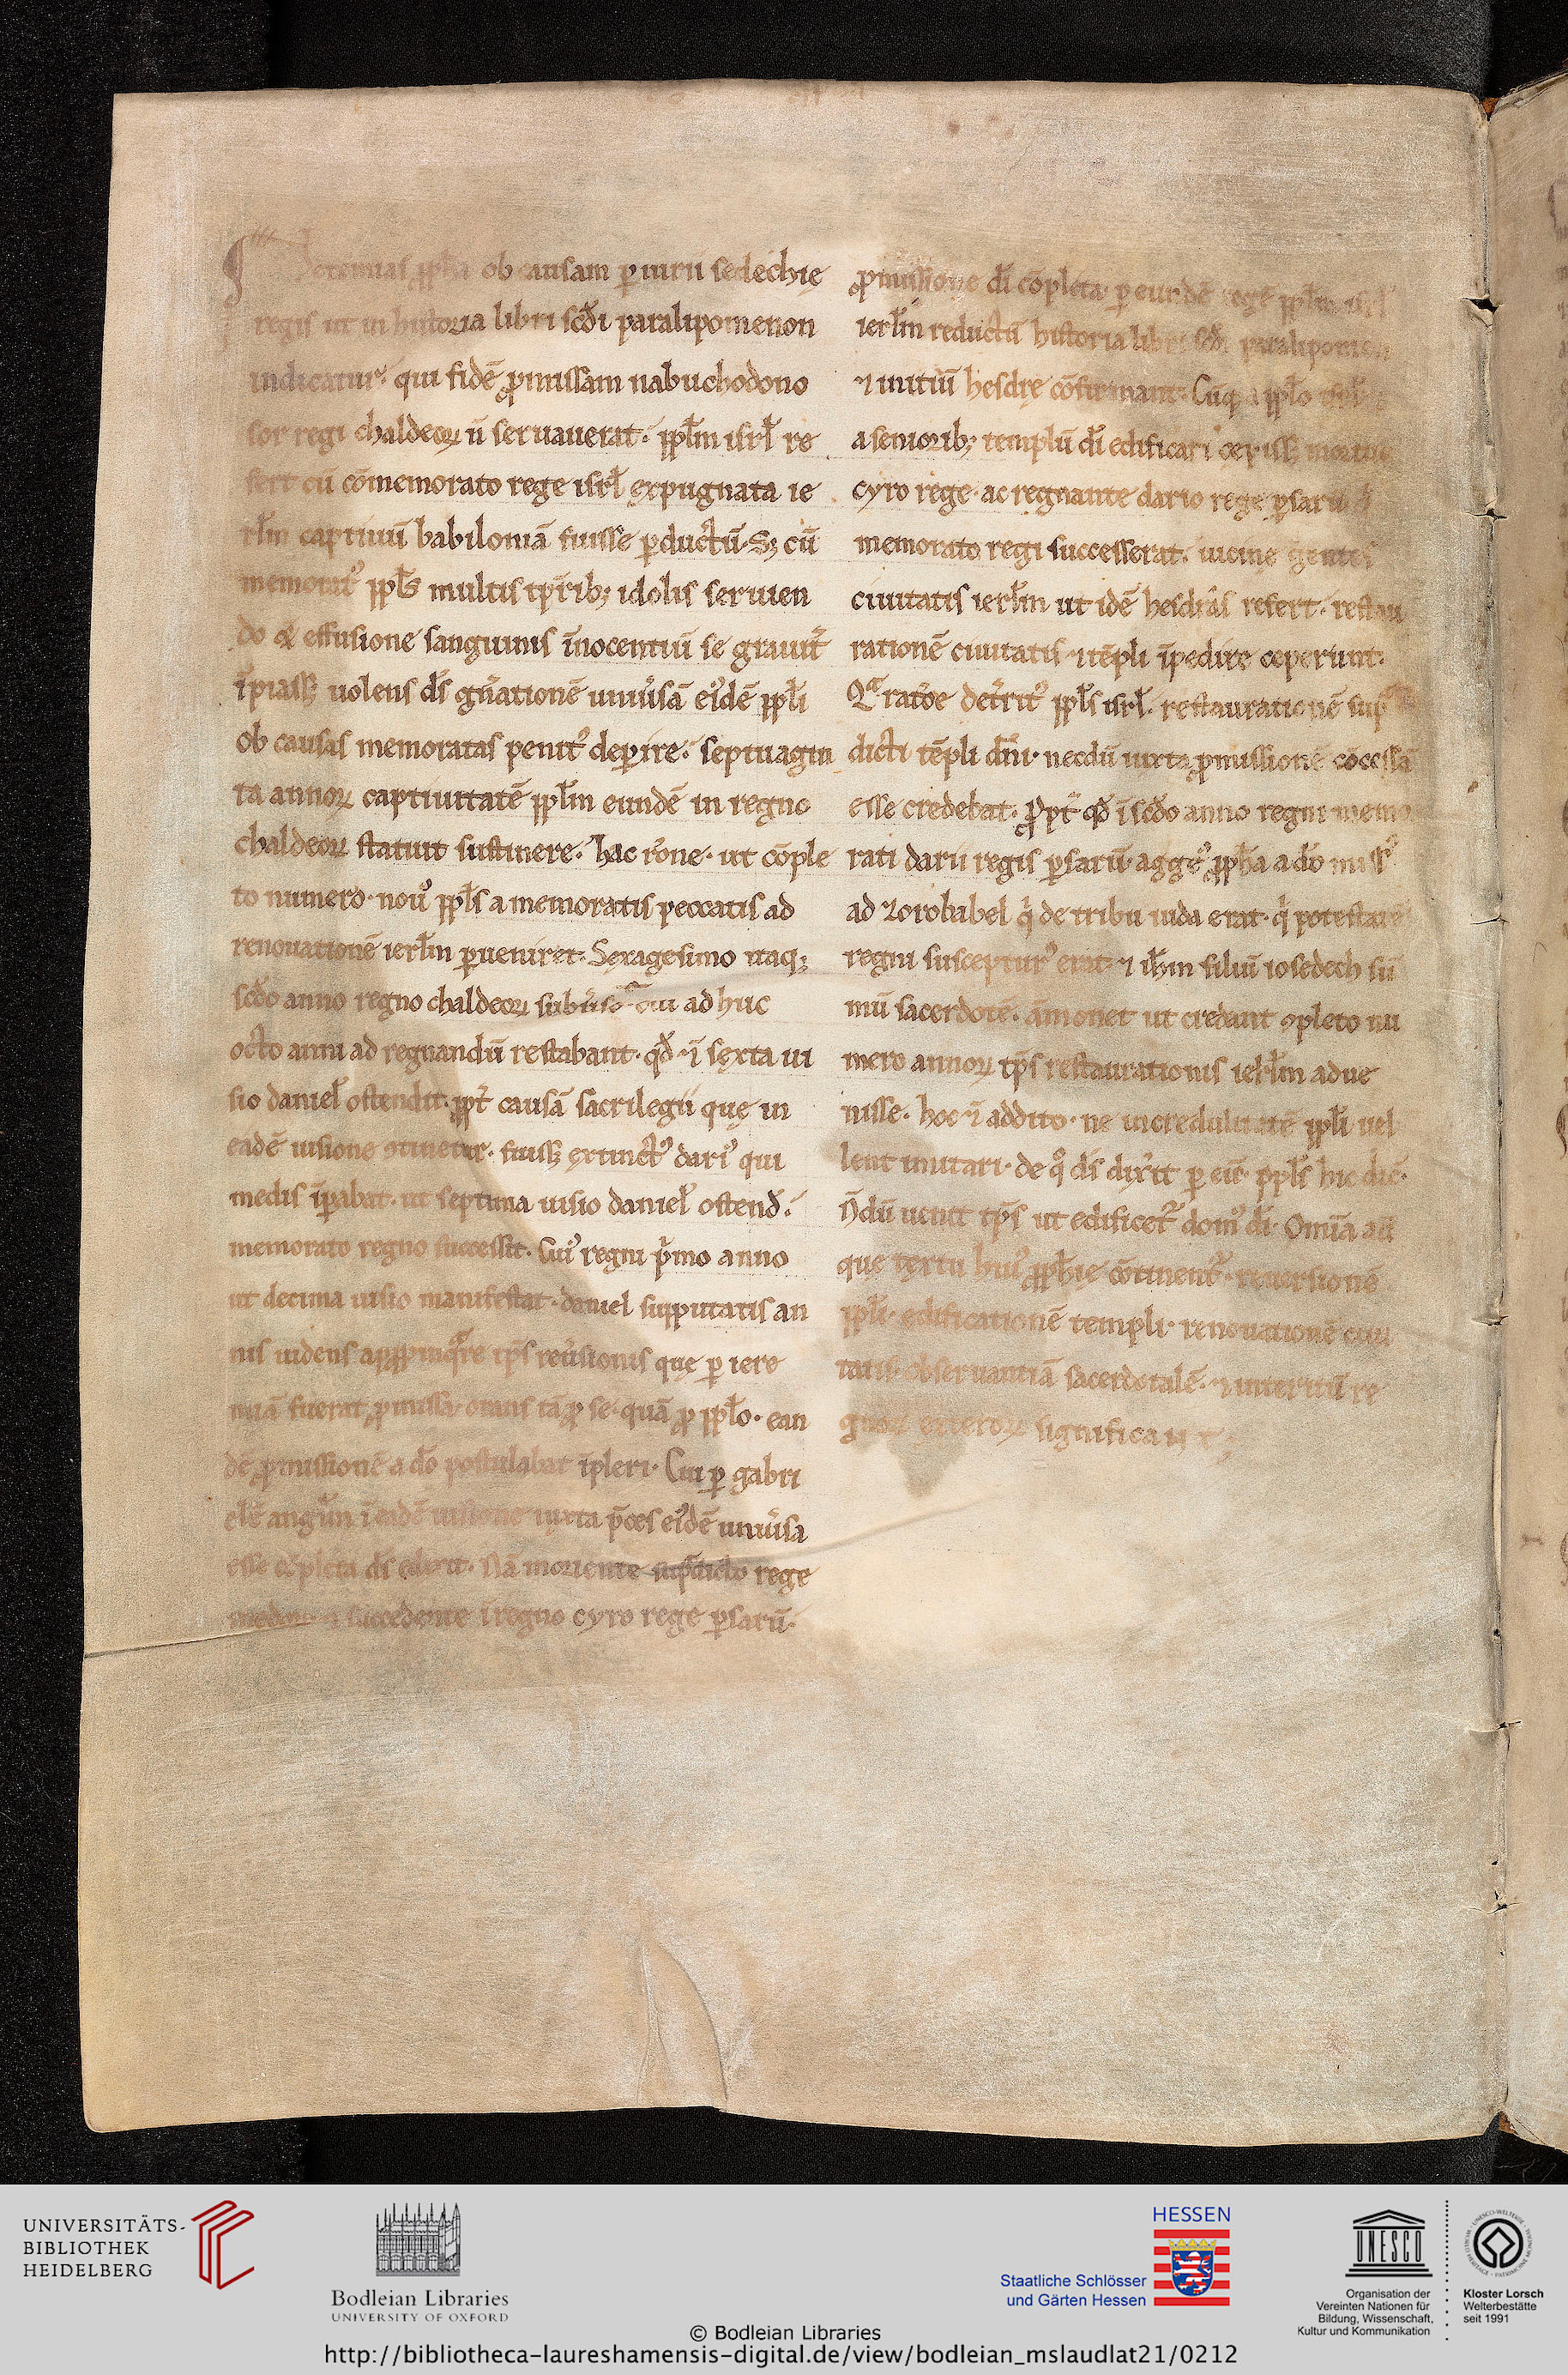 Ieremias ꝓph̄a ob causam ꝑiurii sedechię
regis ut in historia libri scd̄i paralipomenon
indicatur. qui fidē ꝓmissam nabuchodono
sor regi chaldeoꝝ n̄ seruauerat. ppl̄m isrl̄ re
fert cū cōmemorato rege isrl̄ expugnata ie
rl̄m captiuū babiloniā fuisse ꝑductū. Sꝫ cū
memoratꝰ ppl̄s multis tꝑribꝫ idolis seruien
do & effusione sanguinis īnocentiū se grauit̄
īpiassꝫ uolens ds̄ gn̄ationē uniuˀsā eiꝰdē ppl̄i
ob causas memoratas penitꝰ deꝑire. septuagin
ta annoꝝ captiuitatē ppl̄m eundē in regno
chaldeoꝝ statuit sustinere. hac rōne. ut cōple
to numero. nouꝰ ppl̄s a memoratis peccatis ad
renouationē ierl̄m ꝑueniret. Sexagesimo itaqꝫ
scd̄o anno regno chaldeoꝝ subuˀso cui ad huc
octo anni ad regnandū restabant. qd̄ ī sexta ui
sio daniel̄ ostendit. ꝓpt̄ causā sacrilegii quę in
eadē uisione ꝯtinetur. fuissꝫ extinctꝰ dariꝰ qui
medis īꝑabat. ut septima uisio daniel̄ ostend̄.
memorato regno successit. Cuiꝰ regni pˈmo anno
ut decima uisio manifestat. daniel supputatis an
nis uidens appͥnqͣre tp̄s reuˀsionis quę ꝑ iere
miā fuerat ꝓmissa. orans tā ꝓ se. quā ꝓ ppl̄o. ean
dē ꝓmissionē a dō postulabat īpleri. Cui ꝑ gabri
elē angl̄m ī eadē uisione iuxta p̄ces eiꝰdē uniuˀsa
esse cōpleta ds̄ edixit. Nā moriente supͣdicto rege
succedente ī regno cyro rege ꝑsarū.
ꝓmissione dī cōpleta. ꝑ eundē regē ppl̄m isrl̄
ierl̄m reductū historia libri scd̄i paralipomen
⁊ initiū hesdrę cōfirmant. Cūqꝫ a ppl̄o isrl̄
a senioribꝫ templū dī edificari cepissꝫ mortuo
cyro rege. ac regnante dario rege ꝑsarū
memorato regi successerat. uicine gentes
ciuitatis ierl̄m ut idē hesdras refert. restau
rationē ciuitatis ⁊ tēpli īpedire ceperunt.
Qͣ ratōe det̄ritꝰ ppl̄s isrl̄. restaurationē supͣ
dicti tēpli dn̄i. necdū iuxta ꝓmissionē cōcessā
esse credebat. ꝓpt̄ qd̄ ī scd̄o anno regni memo
rati darii regis ꝑsarū. aggęꝰ ꝓph̄a a dō missꝰ
ad zorobabel qͥ de tribu iuda erat. qͥ potestatē
regni suscepturꝰ erat. ⁊ ih̄m filiū iosedech sū
mū sacerdotē. āmonet ut credant ꝯpleto nu
mero annoꝝ tp̄s restaurationis ierl̄m adue
nisse. hoc ī addito. ne incredulitatē ppl̄i uel
lent imitari. de qͦ ds̄ dixit ꝑ eū. ppl̄s hic dīc.
N̄dū uenit tp̄s ut edificet̄ domꝰ dī. Omīa aū
que textu huiꝰ ꝓph̄ie cōtinent̄. reuersionē
ppl̄i. edificationē templi. renouationē ciui
tatis. obseruantiā sacerdotalē. ⁊ interitū re
gnoꝝ exteroꝝ significant;
UNIVERSITÄTS-
BIBLIOTHEK
HEIDELBERG
Bodleian Libraries
UNIVERSITY OF OXFORD
HESSEN
Staatliche Schlösser
und Gärten Hessen
UNESCO
Organisation der
Vereinten Nationen für
Bildung, Wissenschaft,
Kultur und Kommunikation
Kloster Lorsch
Welterbestätte
seit 1991
© Bodleian Libraries
http://bibliotheca-laureshamensis-digital.de/view/bodleian_mslaudlat21/0212